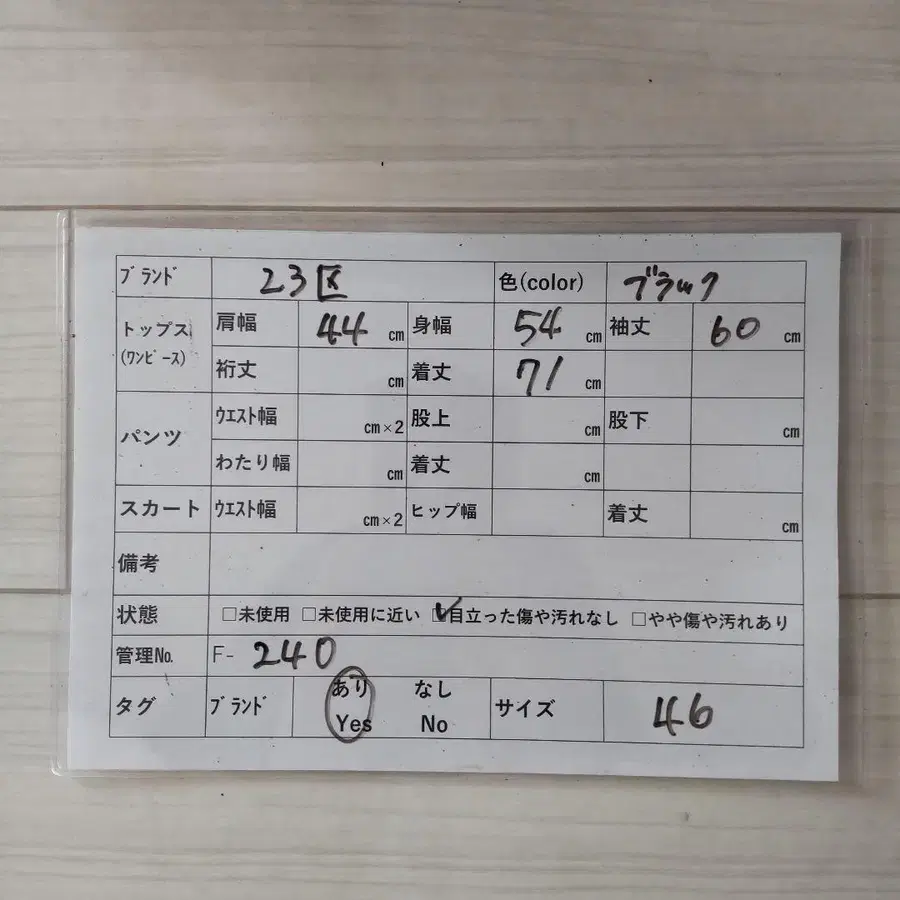 ﾌﾞﾗﾝﾄﾞ 23区 色(color) ブラック
トップス 肩幅 44 cm 身幅 54 cm 袖丈 60 cm
(ﾜﾝﾋﾟｰｽ) 裄丈 cm 着丈 71 cm
パンツ ｳｴｽﾄ幅 cm×2 股上 cm 股下 cm
わたり幅 cm 着丈 cm
スカート ｳｴｽﾄ幅 cm×2 ヒップ幅 着丈 cm
備考
状態 □未使用 □未使用に近い ☑目立った傷や汚れなし □やや傷や汚れあり
管理№ F- 240
タグ ﾌﾞﾗﾝﾄﾞ あり なし サイズ 46
Yes No